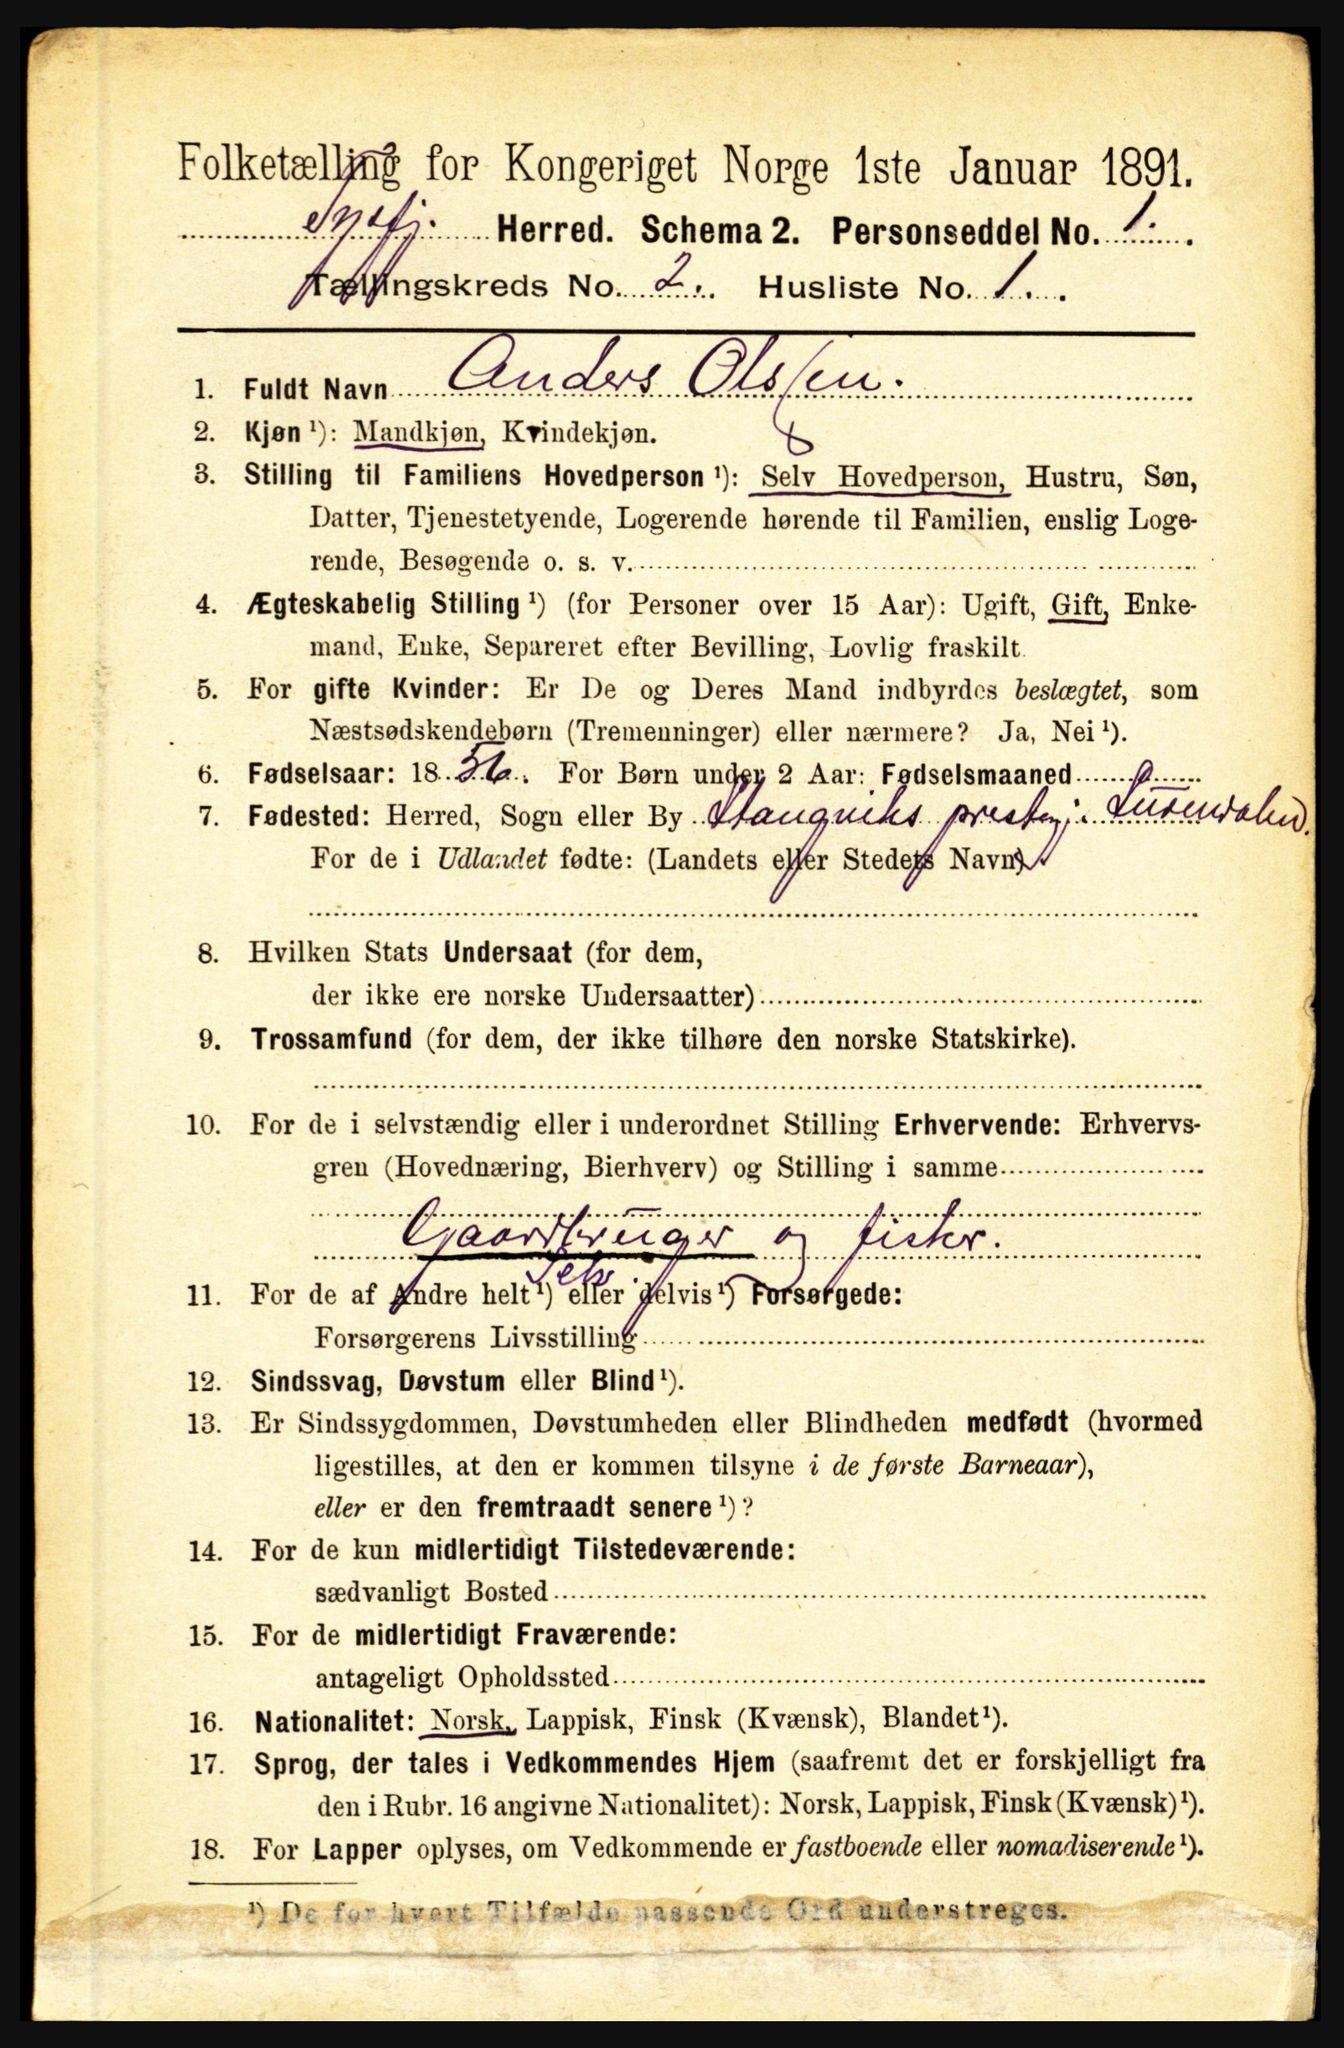 Folketælling for Kongeriget Norge 1ste Januar 1891.
Herred. Schema 2. Personseddel No. 1.
Tællingskreds No. 2. Husliste No. 1.
1. Fuldt Navn Anders Olsen.
2. Kjøn ¹): Mandkjøn, Kvindekjøn.
3. Stilling til Familiens Hovedperson ¹): Selv Hovedperson, Hustru, Søn,
Datter, Tjenestetyende, Logerende hørende til Familien, enslig Loge-
rende, Besøgende o. s. v.
4. Ægteskabelig Stilling ¹) (for Personer over 15 Aar): Ugift, Gift, Enke-
mand, Enke, Separeret efter Bevilling, Lovlig fraskilt
5. For gifte Kvinder: Er De og Deres Mand indbyrdes beslægtet, som
Næstsødskendebørn (Tremenninger) eller nærmere? Ja, Nei ¹).
6. Fødselsaar: 1856. For Børn under 2 Aar: Fødselsmaaned
7. Fødested: Herred, Sogn eller By Stangviks prestegj.
For de i Udlandet fødte: (Landets eller Stedets Navn)
8. Hvilken Stats Undersaat (for dem,
der ikke ere norske Undersaatter)
9. Trossamfund (for dem, der ikke tilhøre den norske Statskirke).
10. For de i selvstændig eller i underordnet Stilling Erhvervende: Erhvervs-
gren (Hovednæring, Bierhverv) og Stilling i samme
Gaardbruger og fisker.
Selv.
11. For de af Andre helt ¹) eller delvis ¹) Forsørgede:
Forsørgerens Livsstilling
12. Sindssvag, Døvstum eller Blind ¹).
13. Er Sindssygdommen, Døvstumheden eller Blindheden medfødt (hvormed
ligestilles, at den er kommen tilsyne i de første Barneaar),
eller er den fremtraadt senere ¹)?
14. For de kun midlertidigt Tilstedeværende:
sædvanligt Bosted
15. For de midlertidigt Fraværende:
antageligt Opholdssted
16. Nationalitet: Norsk, Lappisk, Finsk (Kvænsk), Blandet ¹).
17. Sprog, der tales i Vedkommendes Hjem (saafremt det er forskjelligt fra
den i Rubr. 16 angivne Nationalitet): Norsk, Lappisk, Finsk (Kvænsk) ¹).
18. For Lapper oplyses, om Vedkommende er fastboende eller nomadiserende ¹).
¹) De for hvert Tilfælde passende Ord understreges.